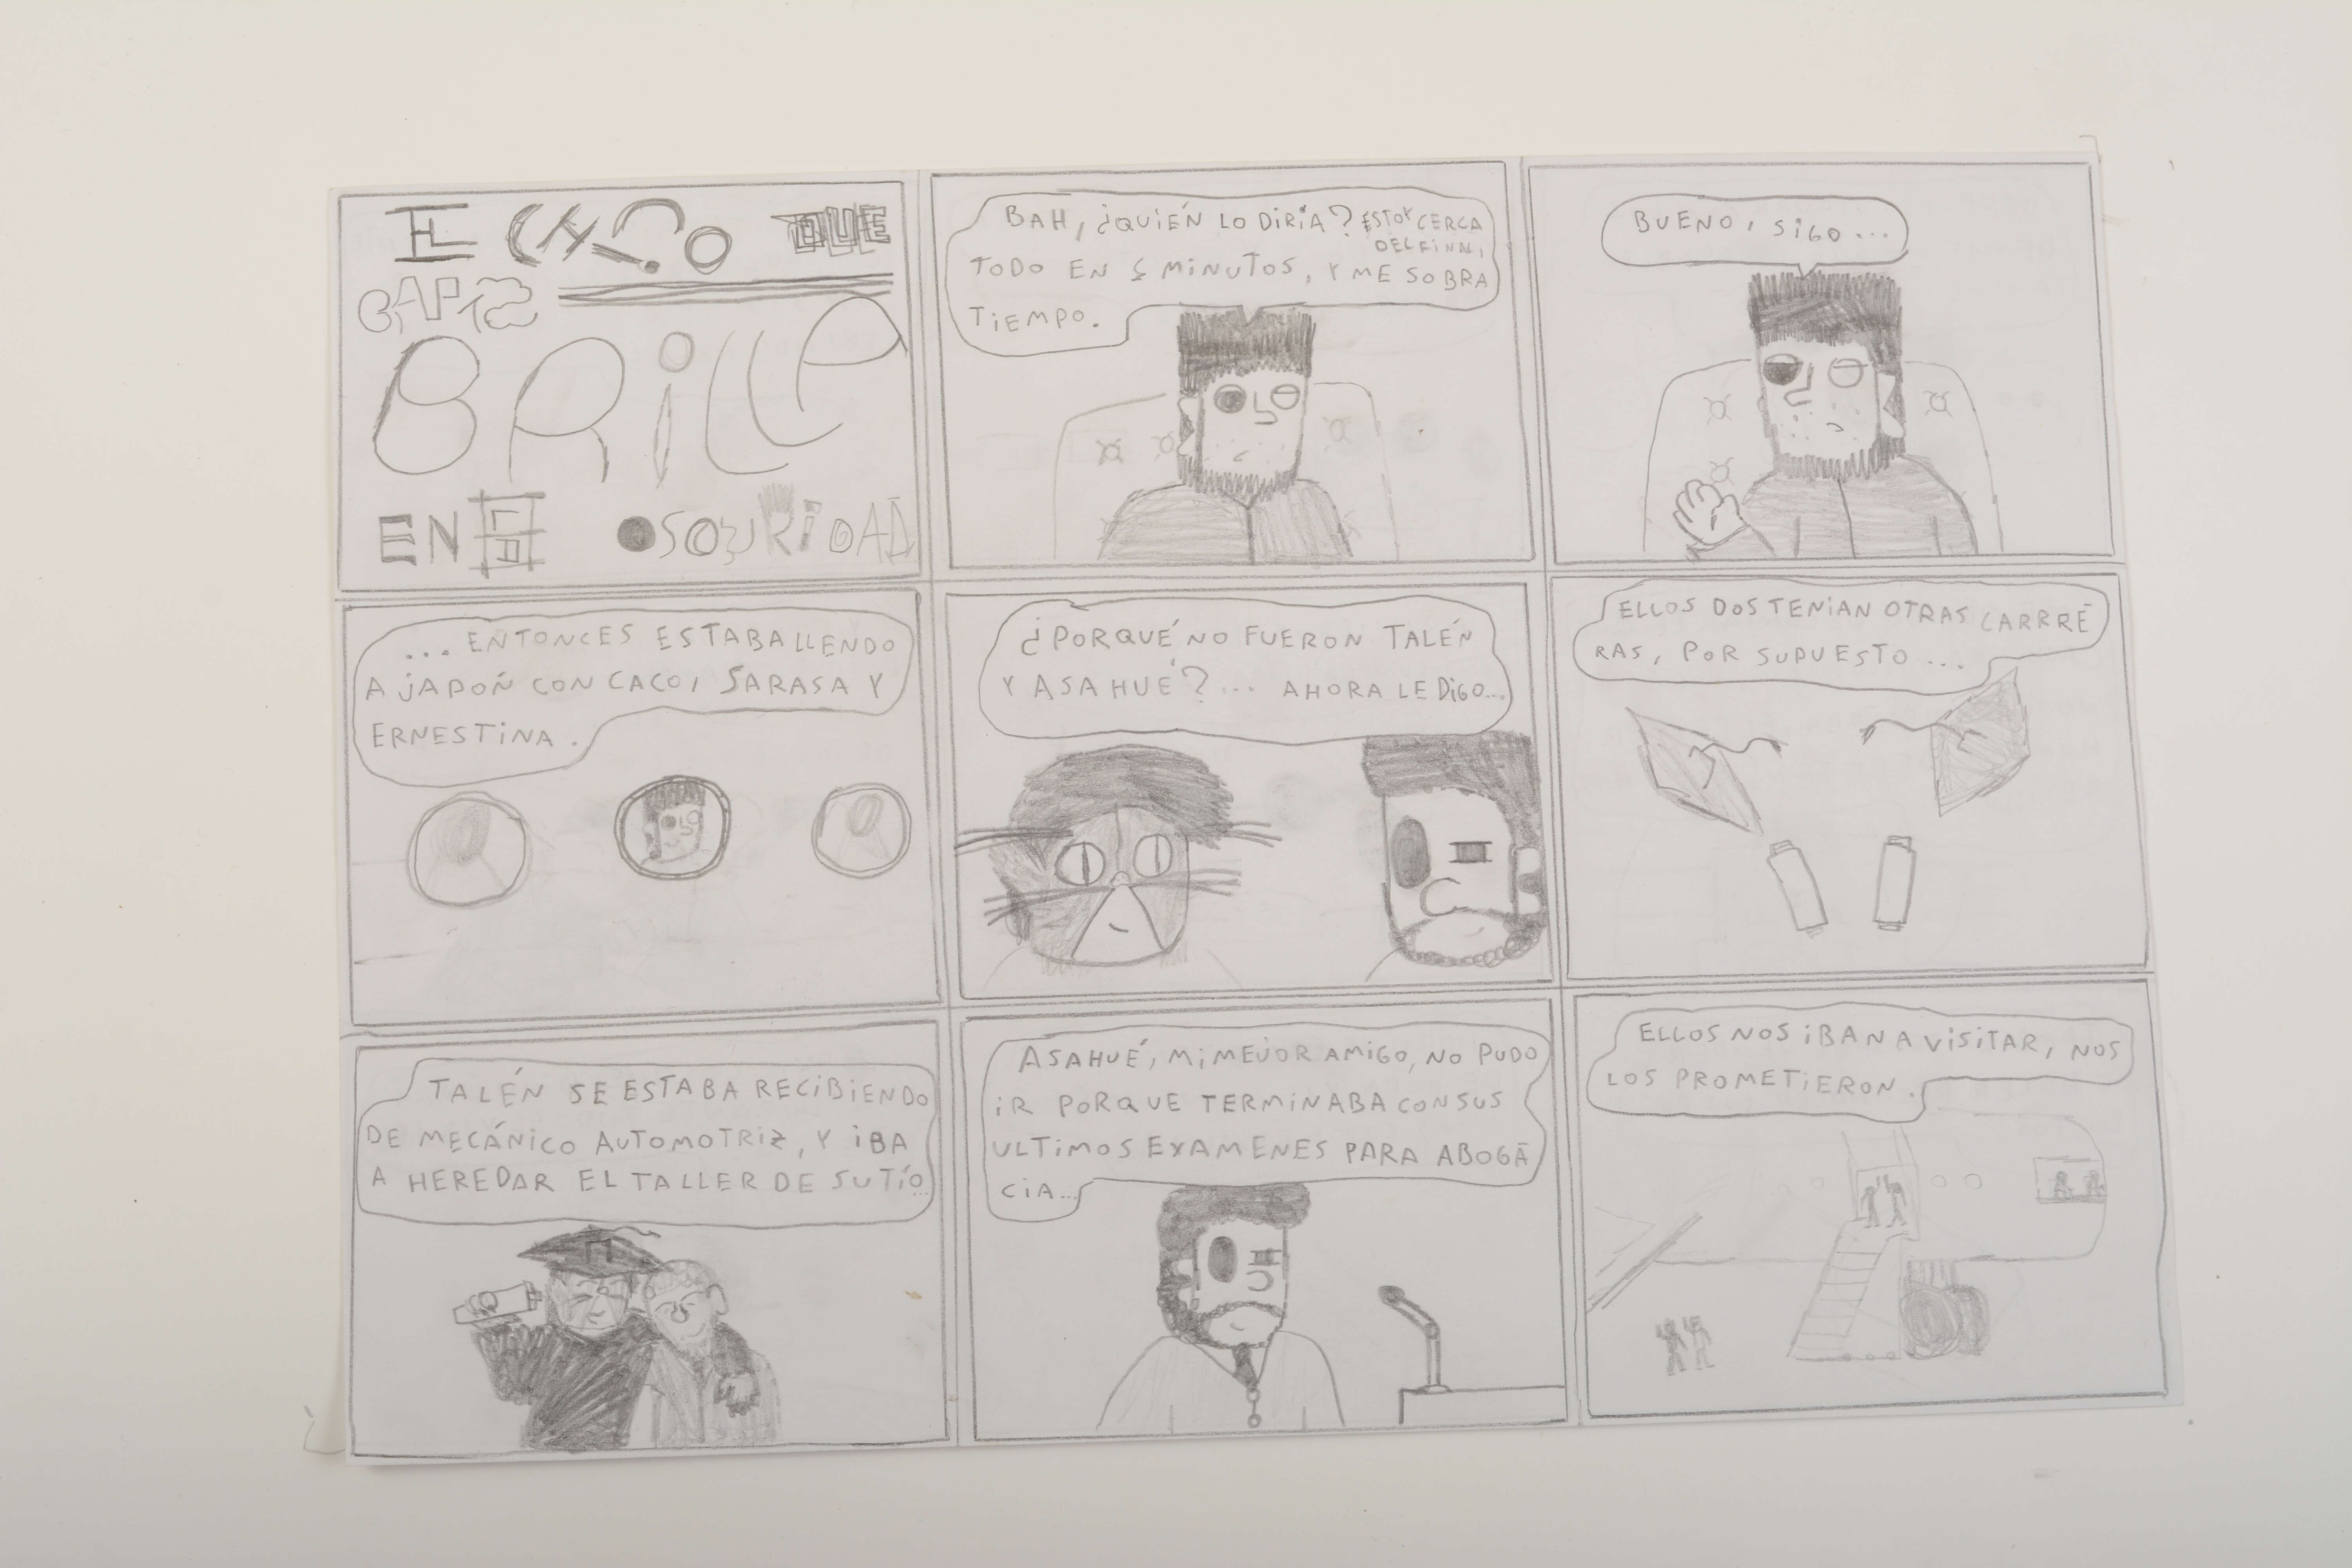 EL CHICO QUE
CAP 12
BRILLA
EN LA OSCURIDAD
BAH, ¿QUIÉN LO DIRÍA? ESTOY CERCA
DEL FINAL,
TODO EN 5 MINUTOS, Y ME SOBRA
TIEMPO.
BUENO, SIGO...
... ENTONCES ESTABA LLENDO
A JAPOÑ CON CACO, SARASA Y
ERNESTINA.
¿PORQUÉ NO FUERON TALÉN
Y ASAHUÉ?... AHORA LE DIGO...
ELLOS DOS TENIAN OTRAS CARRRE
RAS, POR SUPUESTO...
TALÉN SE ESTABA RECIBIENDO
DE MECÁNICO AUTOMOTRIZ, Y IBA
A HEREDAR EL TALLER DE SU TÍO...
ASAHUÉ, MI MEJOR AMIGO, NO PUDO
IR PORQUE TERMINABA CON SUS
ULTIMOS EXAMENES PARA ABOGA
CIA...
ELLOS NOS IBAN A VISITAR, NOS
LOS PROMETIERON.